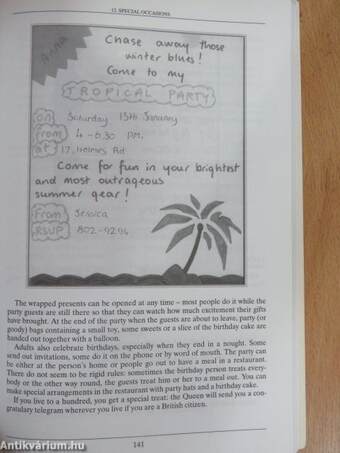 12. SPECIAL OCCASIONS
Anna
Chase away those
winter blues!
Come to my
TROPICAL PARTY
on Saturday 15th January
from 4 - 6.30 P.M.
at 17, Holmes Rd
Come for fun in your brightest
and most outrageous
summer gear!
From Jessica
RSVP 802-9294
The wrapped presents can be opened at any time – most people do it while the
party guests are still there so that they can watch how much excitement their gifts
have brought. At the end of the party when the guests are about to leave, party (or
goody) bags containing a small toy, some sweets or a slice of the birthday cake are
handed out together with a balloon.
Adults also celebrate birthdays, especially when they end in a nought. Some
send out invitations, some do it on the phone or by word of mouth. The party can
be either at the person's home or people go out to have a meal in a restaurant.
There do not seem to be rigid rules: sometimes the birthday person treats every-
body or the other way round, the guests treat him or her to a meal out. You can
make special arrangements in the restaurant with party hats and a birthday cake.
If you live to a hundred, you get a special treat: the Queen will send you a con-
gratulary telegram wherever you live if you are a British citizen.
141
Antikvárium.hu